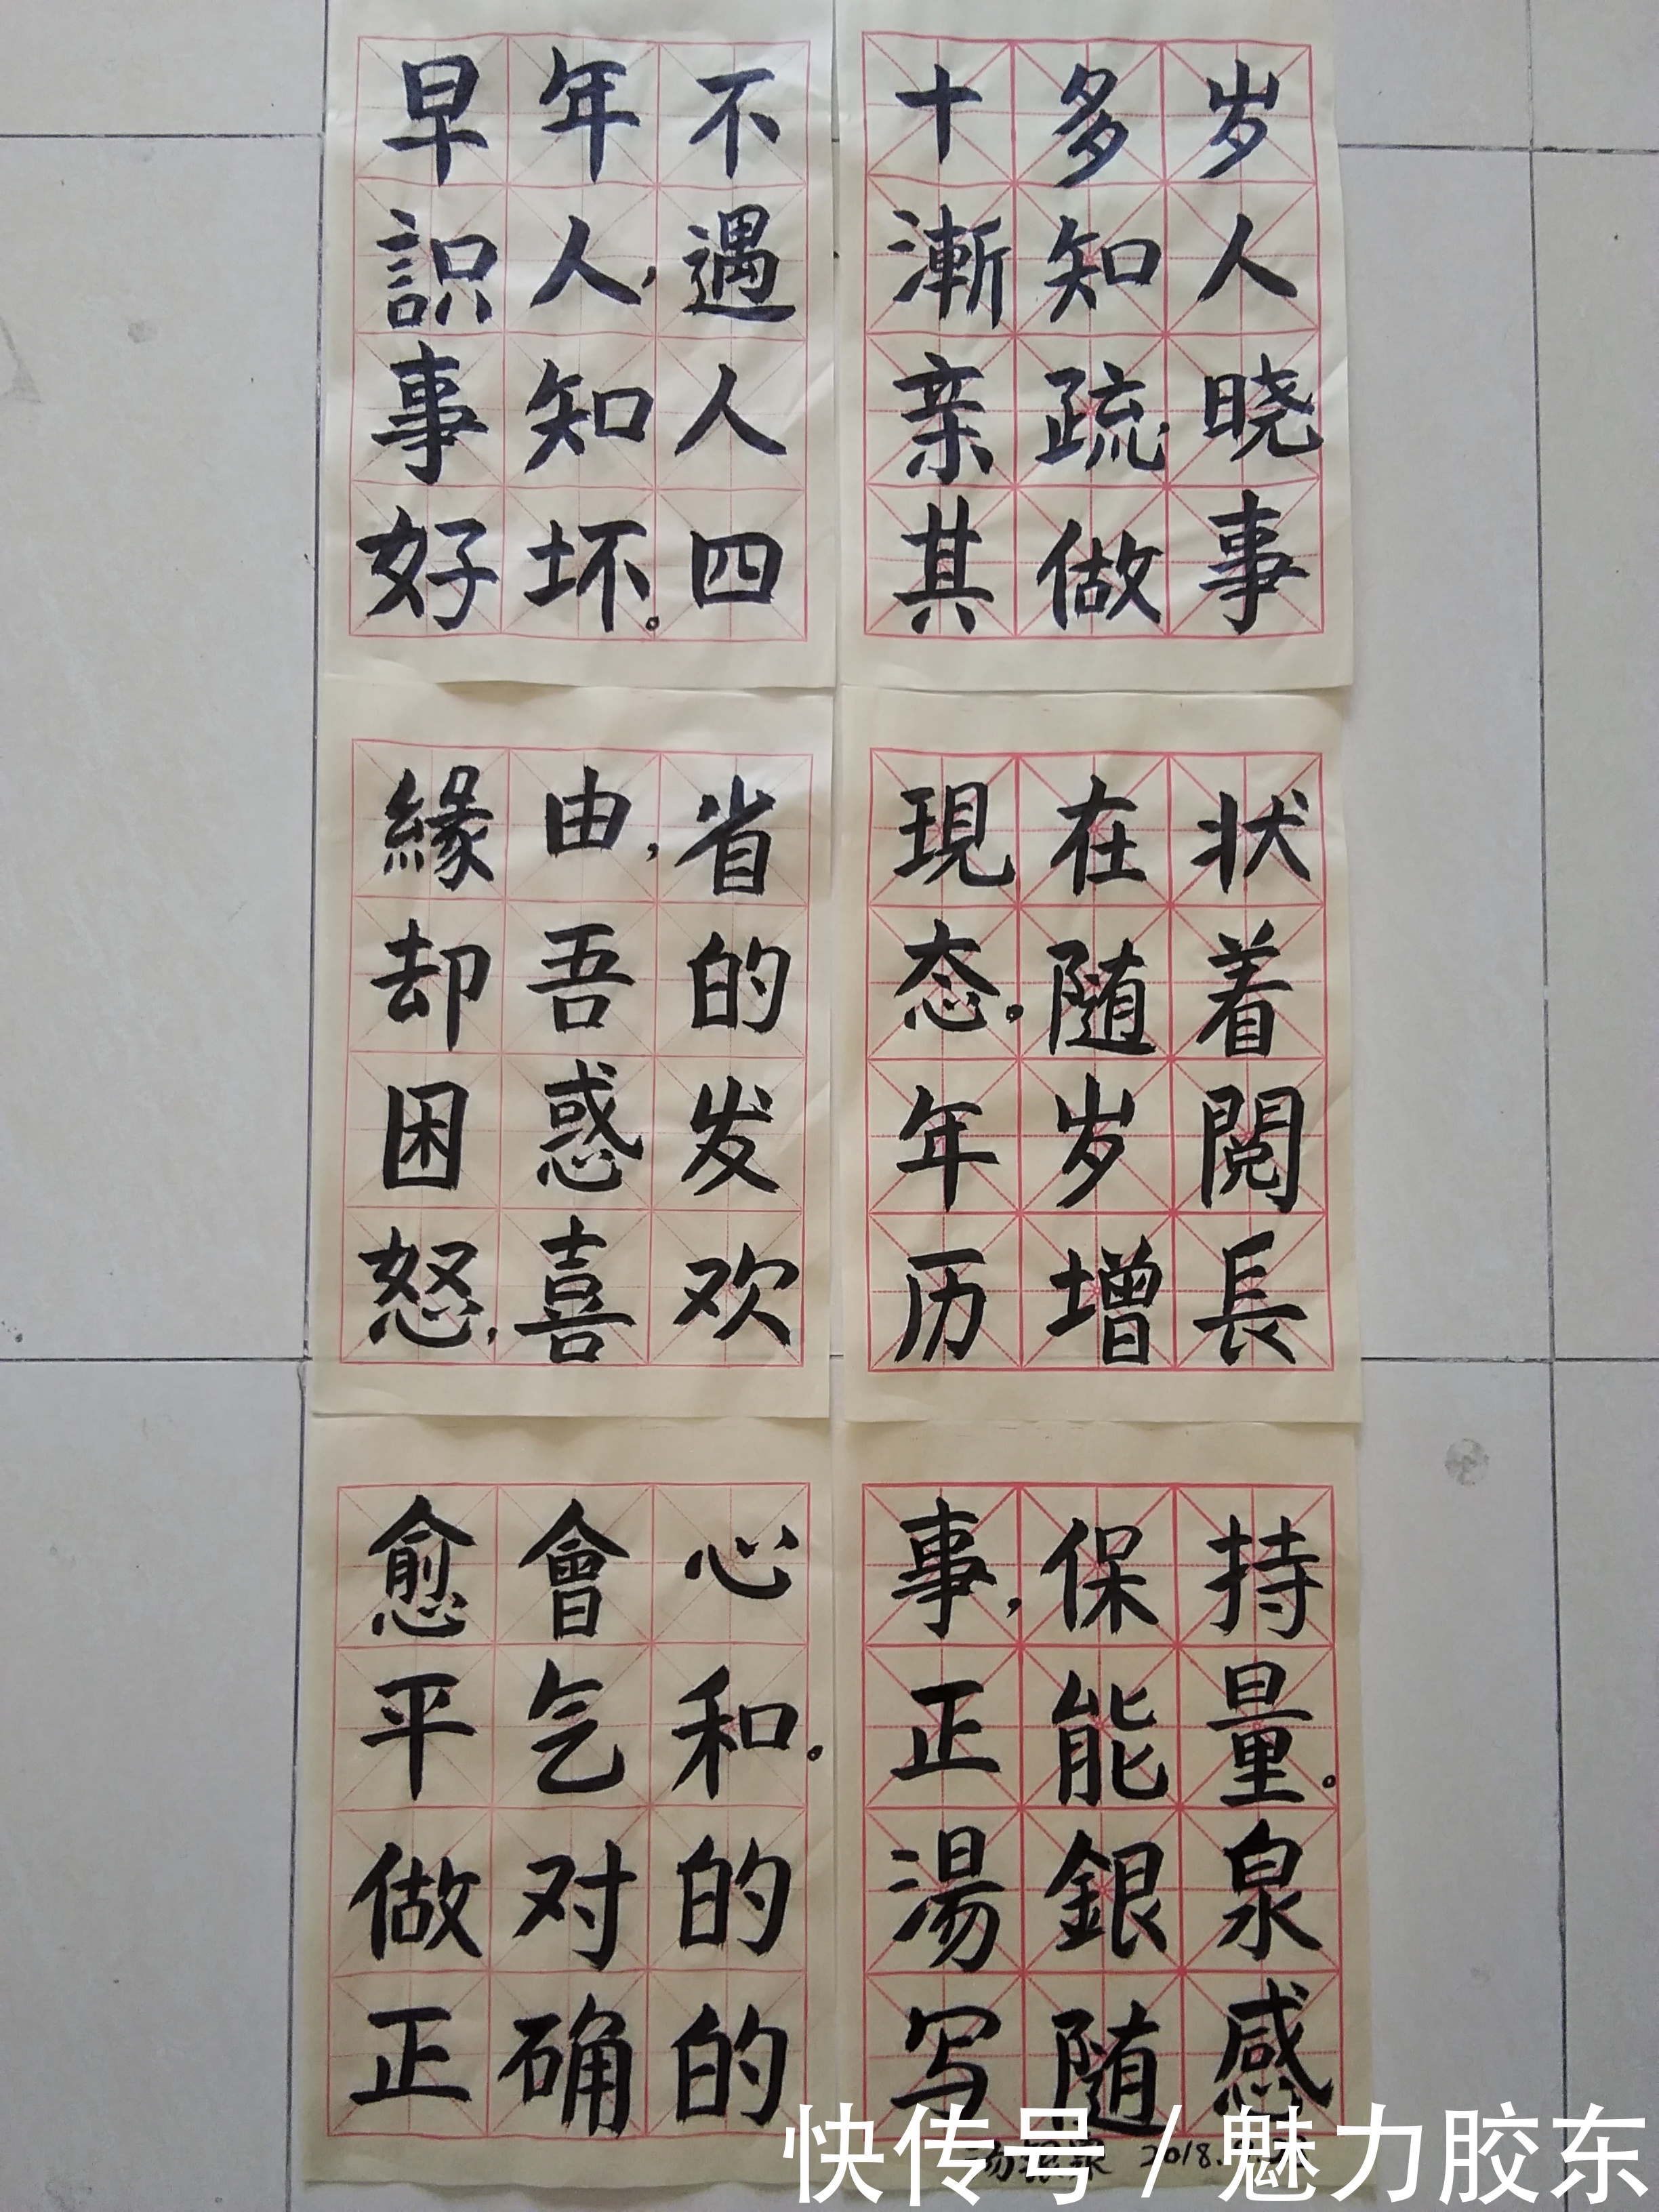 早年不
识人，遇
事知人
好坏。四
十多岁
漸知人
亲疏晓
其做事
緣由，省
却吾的
困惑发
怒，喜欢
現在状
态。随着
年岁閲
历增長
愈會心
平气和。
做对的
正确的
事，保持
正能量。
湯銀泉
写随感
2018.
快传号 / 魅力胶东